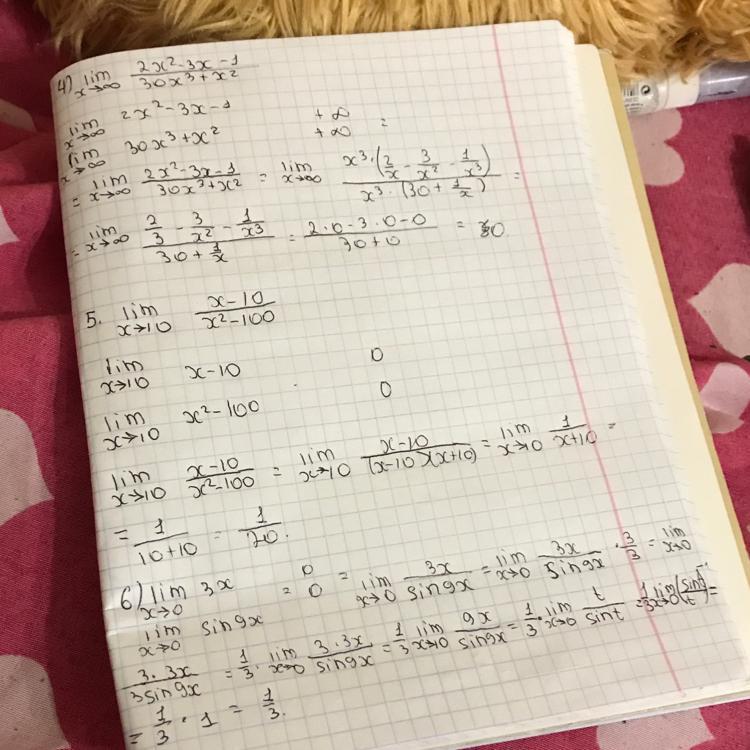 4) lim x→∞ (2x²-3x-1)/(30x³+x²)
lim x→∞ 2x²-3x-1 +∞
lim x→∞ 30x³+x² +∞ =
= lim x→∞ (2x²-3x-1)/(30x³+x²) = lim x→∞ (x³·(2/x - 3/x² - 1/x³))/(x³·(30+1/x)) =
= lim x→∞ (2/3 - 3/x² - 1/x³)/(30+1/x) = (2·0-3·0-0)/(30+0) = 0
5. lim x→10 (x-10)/(x²-100)
lim x→10 x-10 0
lim x→10 x²-100 0
lim x→10 (x-10)/(x²-100) = lim x→10 (x-10)/((x-10)(x+10)) = lim x→10 1/(x+10) =
= 1/(10+10) = 1/20.
6) lim x→0 3x = 0/0 = lim x→0 3x/sin9x = lim x→0 3x/sin9x · 3/3 = lim x→0
lim x→0 sin9x
3·3x/3sin9x = 1/3 · lim x→0 3·3x/sin9x = 1/3 lim x→0 9x/sin9x = 1/3 · lim x→0 t/sint = 1/3 lim x→0 (sint/t)⁻¹ =
= 1/3 · 1 = 1/3.